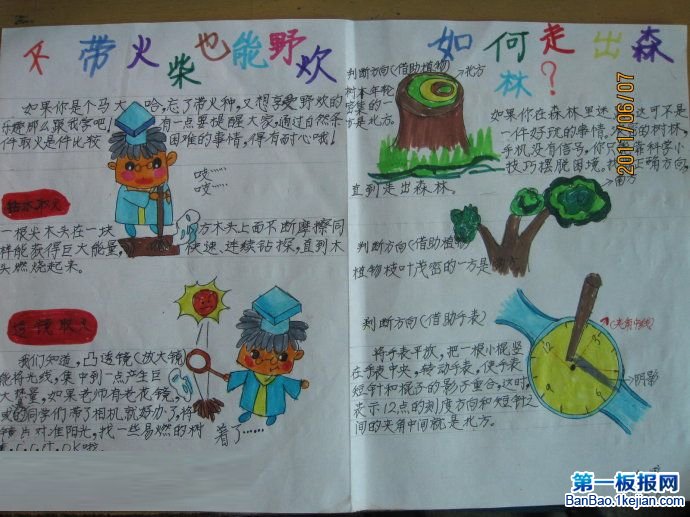 不带火柴也能野炊
如果你是个马大哈,忘了带火种,又想享受野炊的
乐趣那么跟我学吧!有一点要提醒大家,通过自然条
件取火是件比较困难的事情,得有耐心哦!
吱……
吱……
钻木取火
一根尖木头在一块方木头上面不断摩擦同
样能获得巨大能量,快速、连续钻探,直到木
头燃烧起来。
透镜取火
我们知道,凸透镜(放大镜)
能将光线,集中到一点产生巨
大热量,如果老师有老夜镜,
的同学们带了相机就好办了,将
镜片对准阳光,找一些易燃的树
OK
着了……
如何走出森林?
判断方向(借助植物)
树木年轮
密集的一
方是北方。
北方
如果你在森林里迷
这可不是
一件好玩的事情,
的树林,
手机没有信号,你只
靠科学小
技巧摆脱困境。找
正确方向,
直到走出森林。
南方
判断方向(借助植物)
植物枝叶茂密的一方是南方
判断方向(借助手表)
(夹角中线)
将手表平放,把一根小棍竖
在手表中央,转动手表,使手表
短针和棍子的影子重合,这时,
表示12点的刻度方向和短针之
间的夹角中间就是北方。
阴影
12
2011/06/07
第一板报网
BanBao.1kejian.com